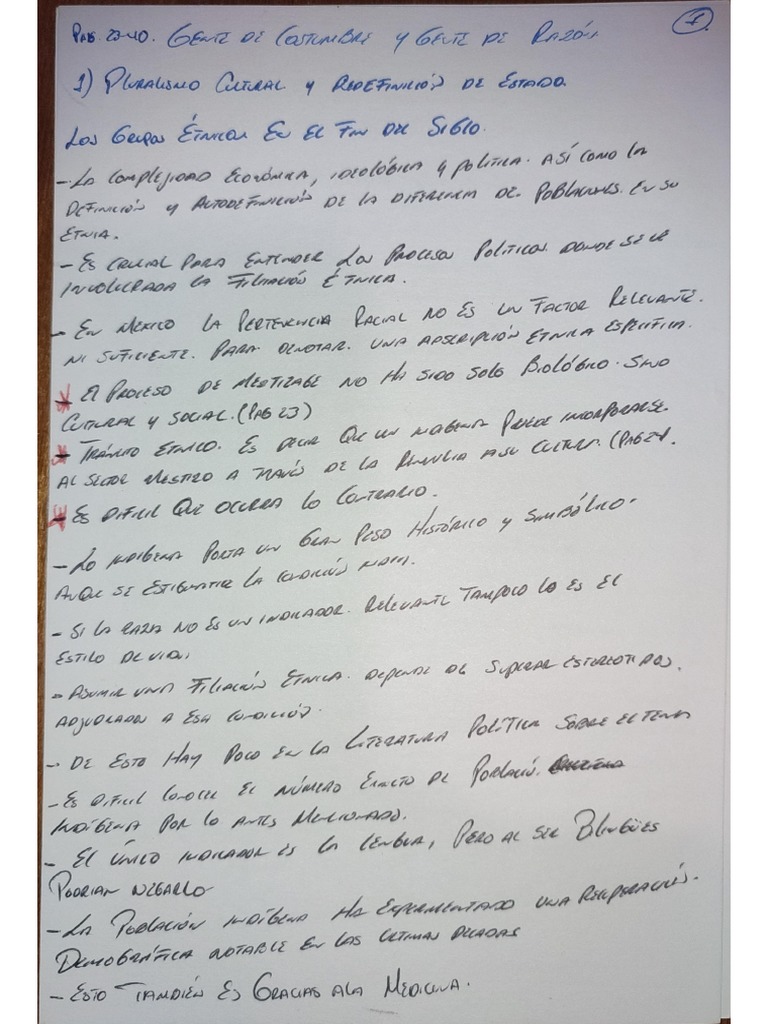 Pag. 23-40. Gente de Costumbre y Gente de Razón. 1.
1) Pluralismo Cultural y Redefinición de Estado.
Los Grupos Étnicos En El Fin Del Siglo.
- La complejidad Económica, ideológica y política. Así como la
Definición y Autodefinición de la diferencia de Poblaciones. En su
Etnia.
- Es crucial para entender los procesos políticos. donde se ve
involucrada la Filiación Étnica.
- En Mexico la Pertenencia Racial no es un Factor Relevante.
ni suficiente. para denotar. una adscripción Etnica especifica.
- El Proceso de Mestizage no ha sido solo Biológico. Sino
Cultural y Social. (Pag 23)
- Tránsito Etnico. Es decir que un indigena puede incorporarse.
al sector mestizo a través de la Renuncia a su Cultura. (Pag 24).
- Es dificil que ocurra lo Contrario.
- Lo indígena Porta un Gran Peso Histórico y Simbólico.
Aunque se Estigmatice la condición
- Si la raza no es un indicador. Relevante Tampoco lo es el
estilo de vida.
- Asumir una Filiación Etnica. depende de superar estereotipos.
adjudicados a esa condición.
- De esto Hay Poco en la Literatura Política sobre el tema
- Es dificil conocer el número Exacto de Población.
indígena por lo antes mencionado.
- El único indicador es la lengua, Pero al ser Bilingües
Podrian negarlo
- La Población indígena Ha Experimentado una Recuperación.
Demográfica notable en las ultimas decadas
- Esto También es Gracias a la Medicina.